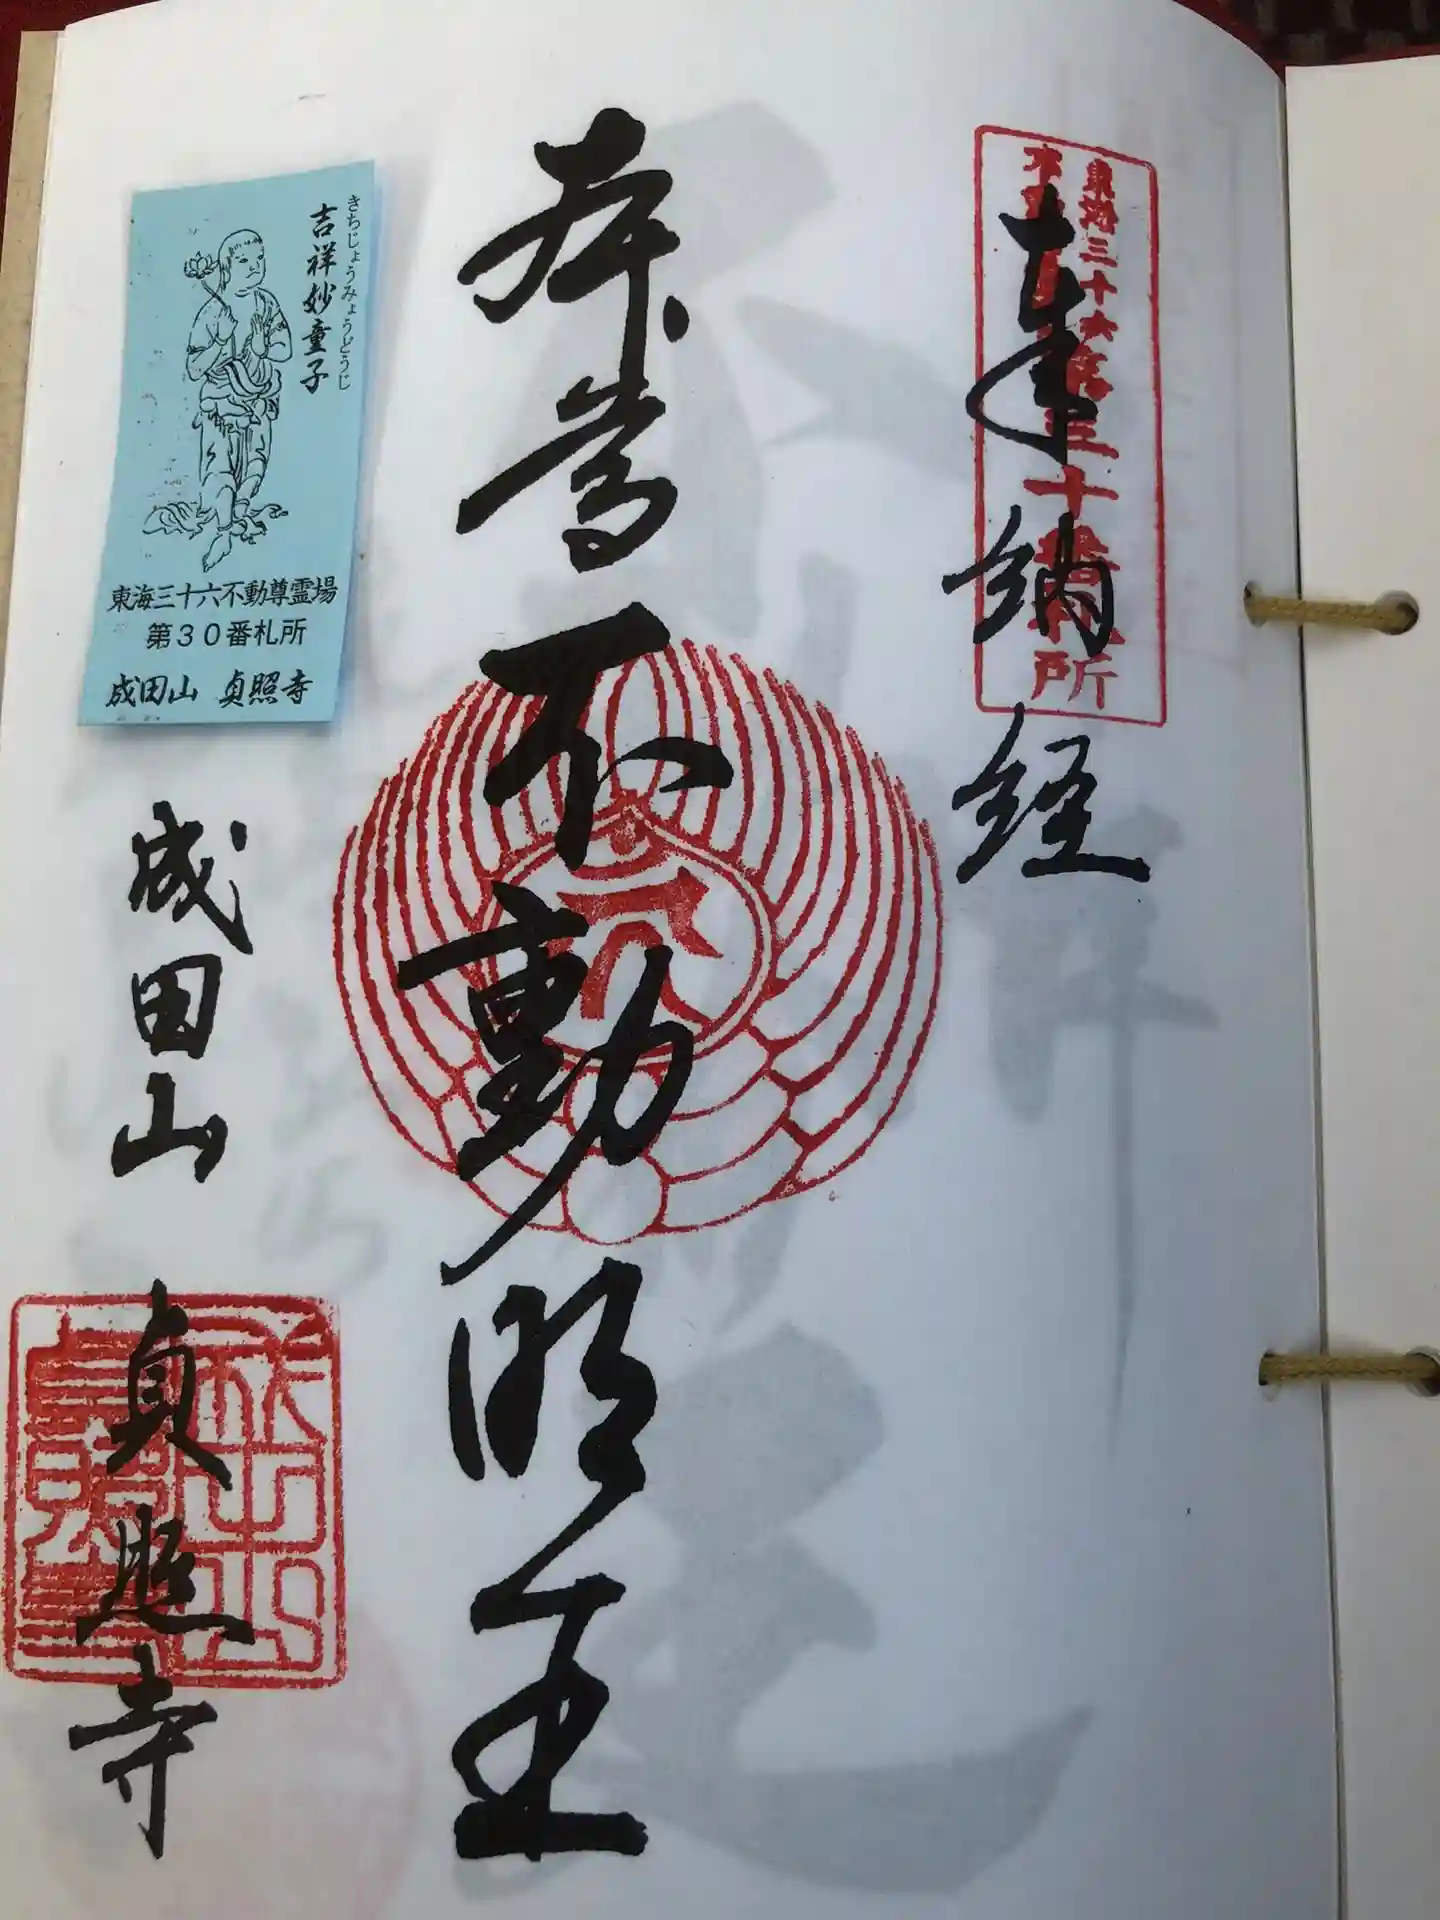 東海三十六
第三十番札所
奉納経
本尊不動明王
きちじょうみょうどうじ
吉祥妙童子
東海三十六不動尊霊場
第30番札所
成田山 貞照寺
成田山 貞照寺